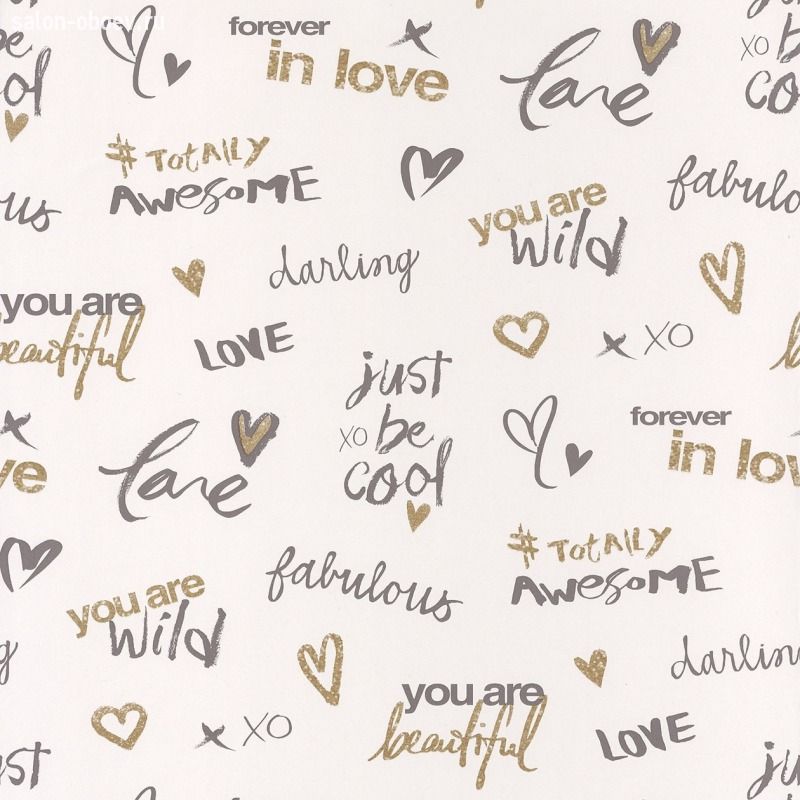 salon-oboev.ru
forever
in love
love
xo be
cool
# TotAlly
AwesoME
fabulo
you are
wild
darling
you are
beautiful
LOVE
x XO
just
xo be
cool
forever
in lov
ve
love
# TotAlly
AwesoME
fabulous
you are
wild
darling
you are
beautiful
x XO
LOVE